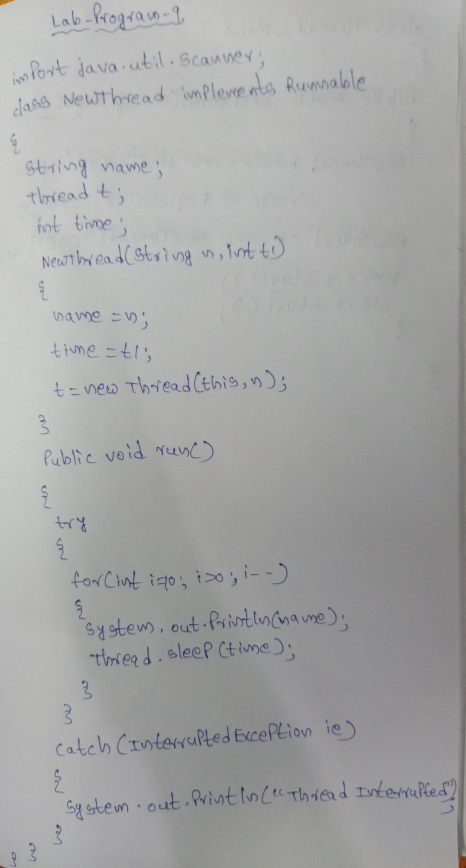 Lab-Program-9
import java.util.Scanner;
class NewThread implements Runnable
{
String name;
Thread t;
int time;
NewThread(String n, int t1)
{
name =n;
time =t1;
t=new Thread(this,n);
}
Public void run()
{
try
{
for(int i=10; i>0; i--)
{
System.out.Println(name);
Thread.sleep(time);
}
}
catch (InterruptedException ie)
{
System.out.Println("Thread Interrupted")
;
}
} }